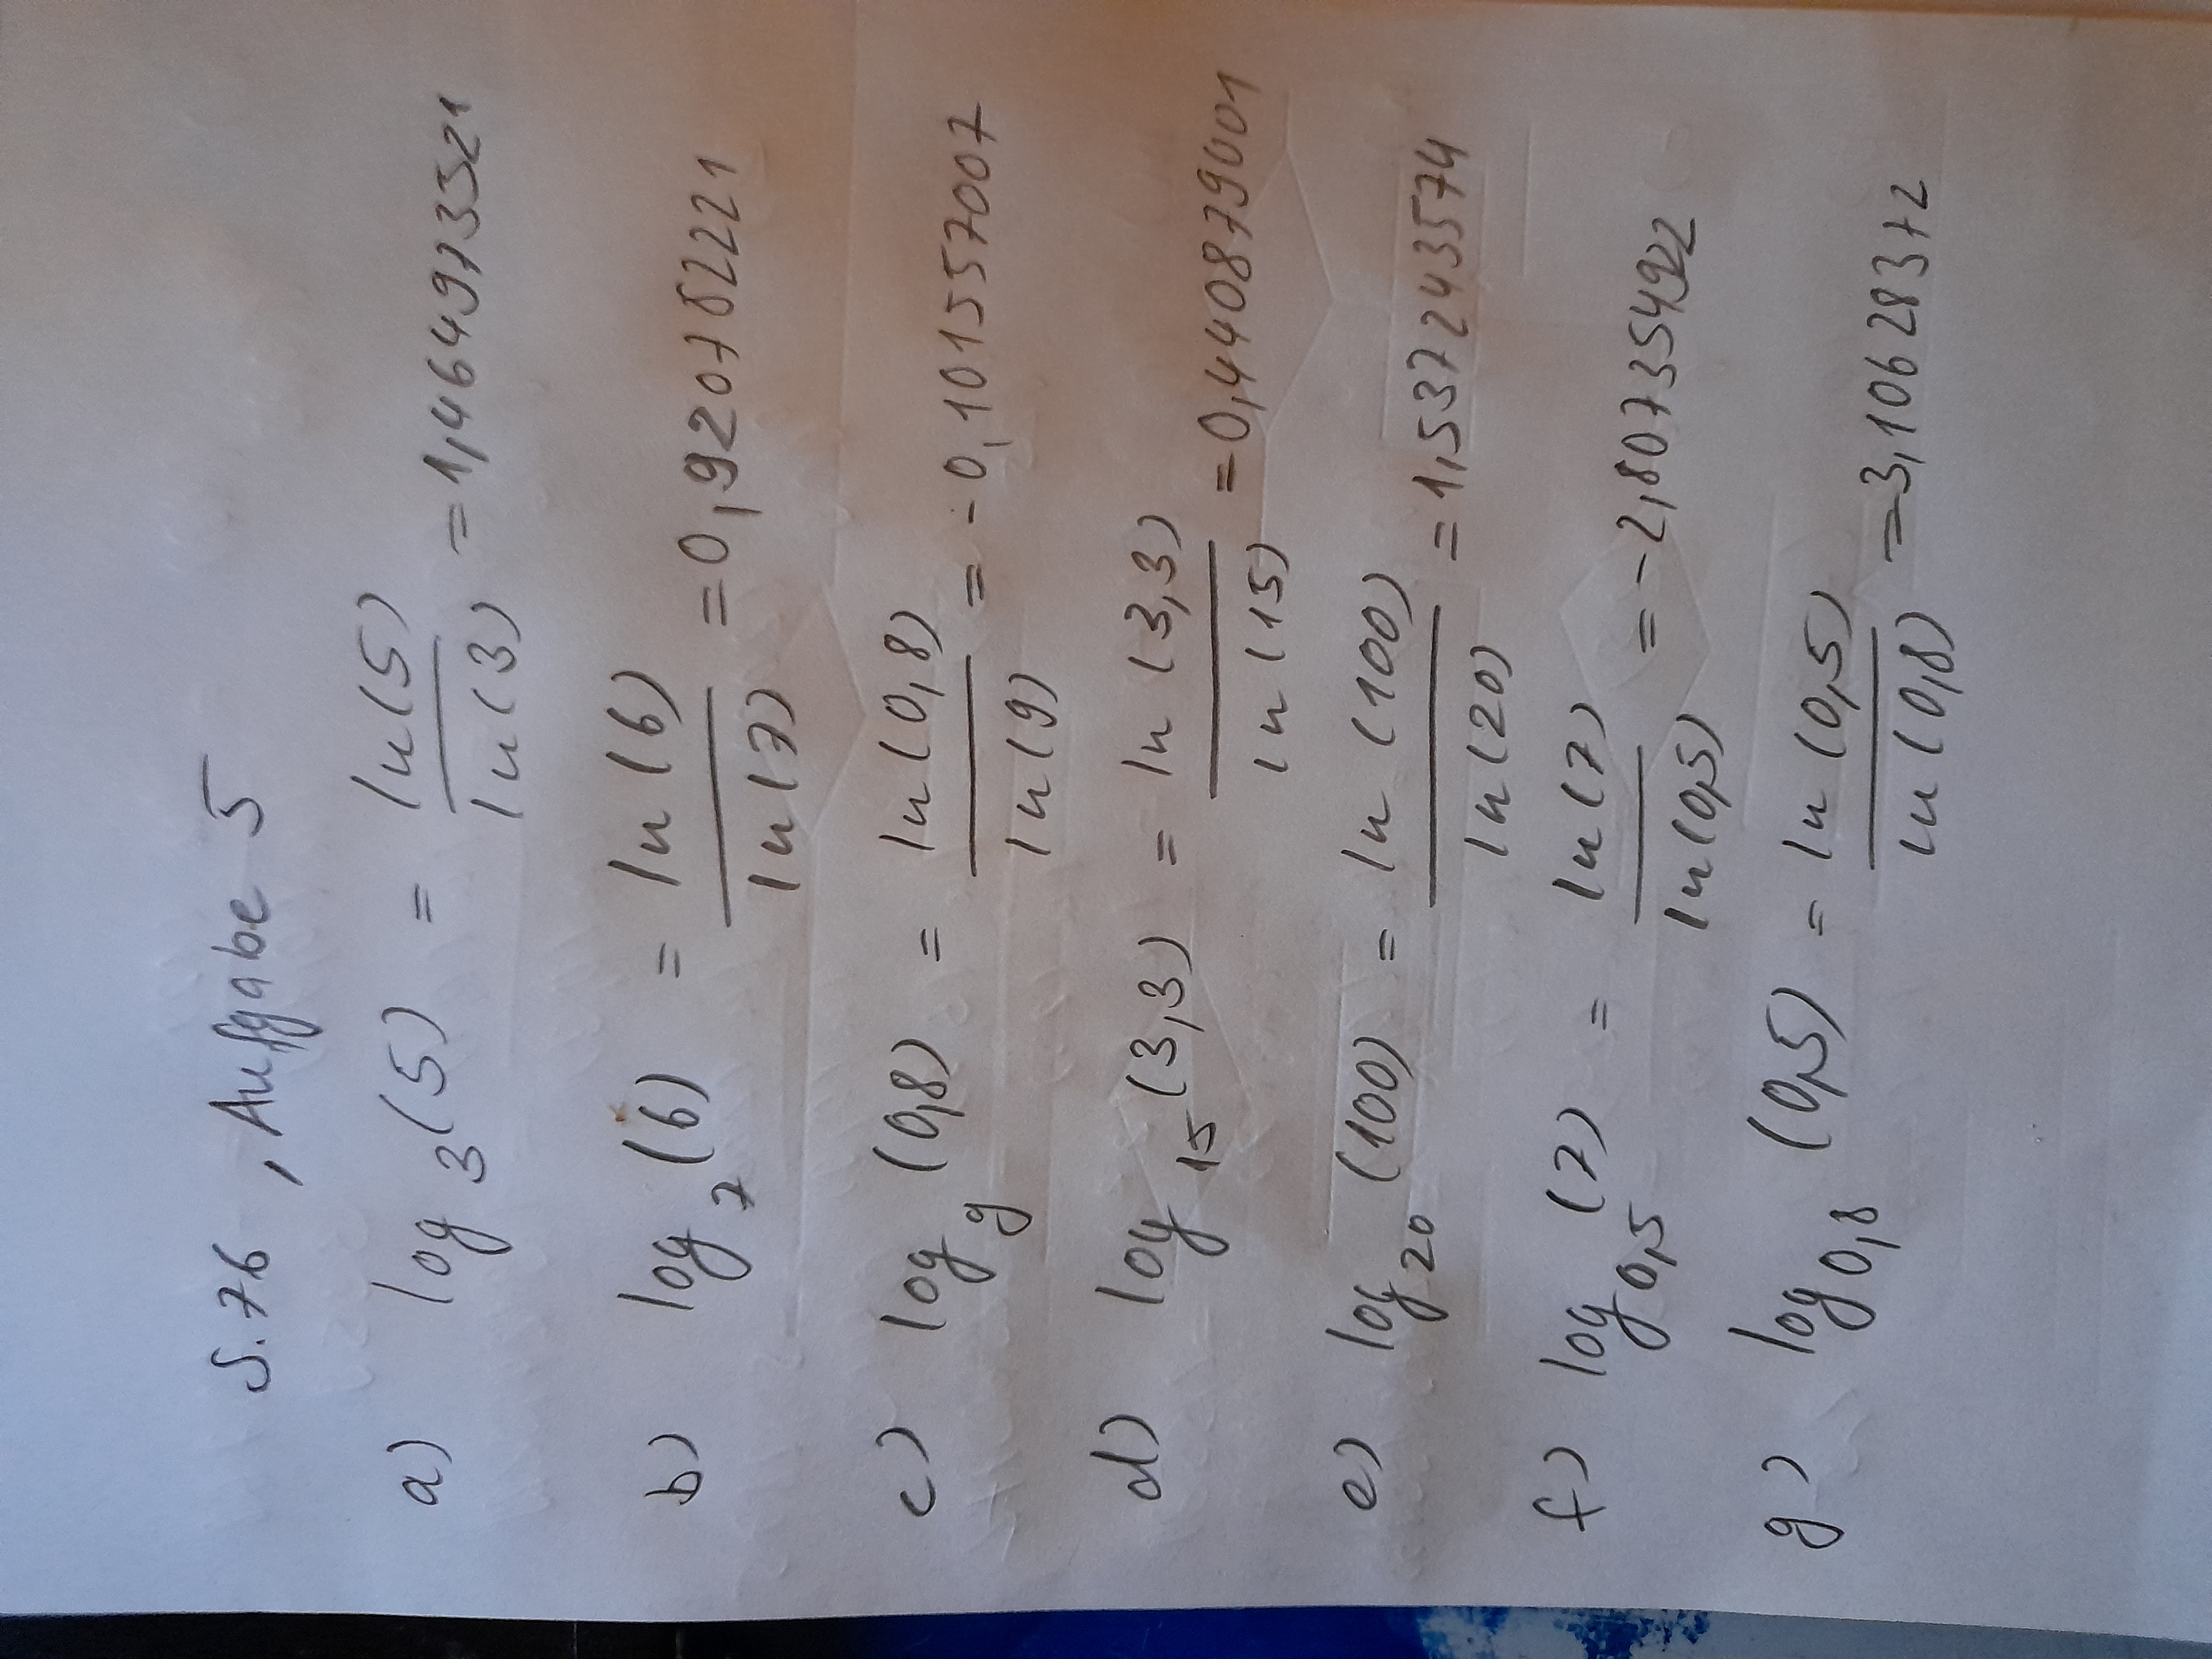 S. 76, Aufgabe 5
a) log₃(5) = ln(5)/ln(3) = 1,464973521
b) log₇(6) = ln(6)/ln(7) = 0,9207822211
c) log₉(0,8) = ln(0,8)/ln(9) = -0,101557007
d) log₁₅(3,3) = ln(3,3)/ln(15) = 0,4408879001
e) log₂₀(100) = ln(100)/ln(20) = 1,537243574
f) log₀,₅(7) = ln(7)/ln(0,5) = -2,807354922
g) log₀,₈(0,5) = ln(0,5)/ln(0,8) = 3,106283372